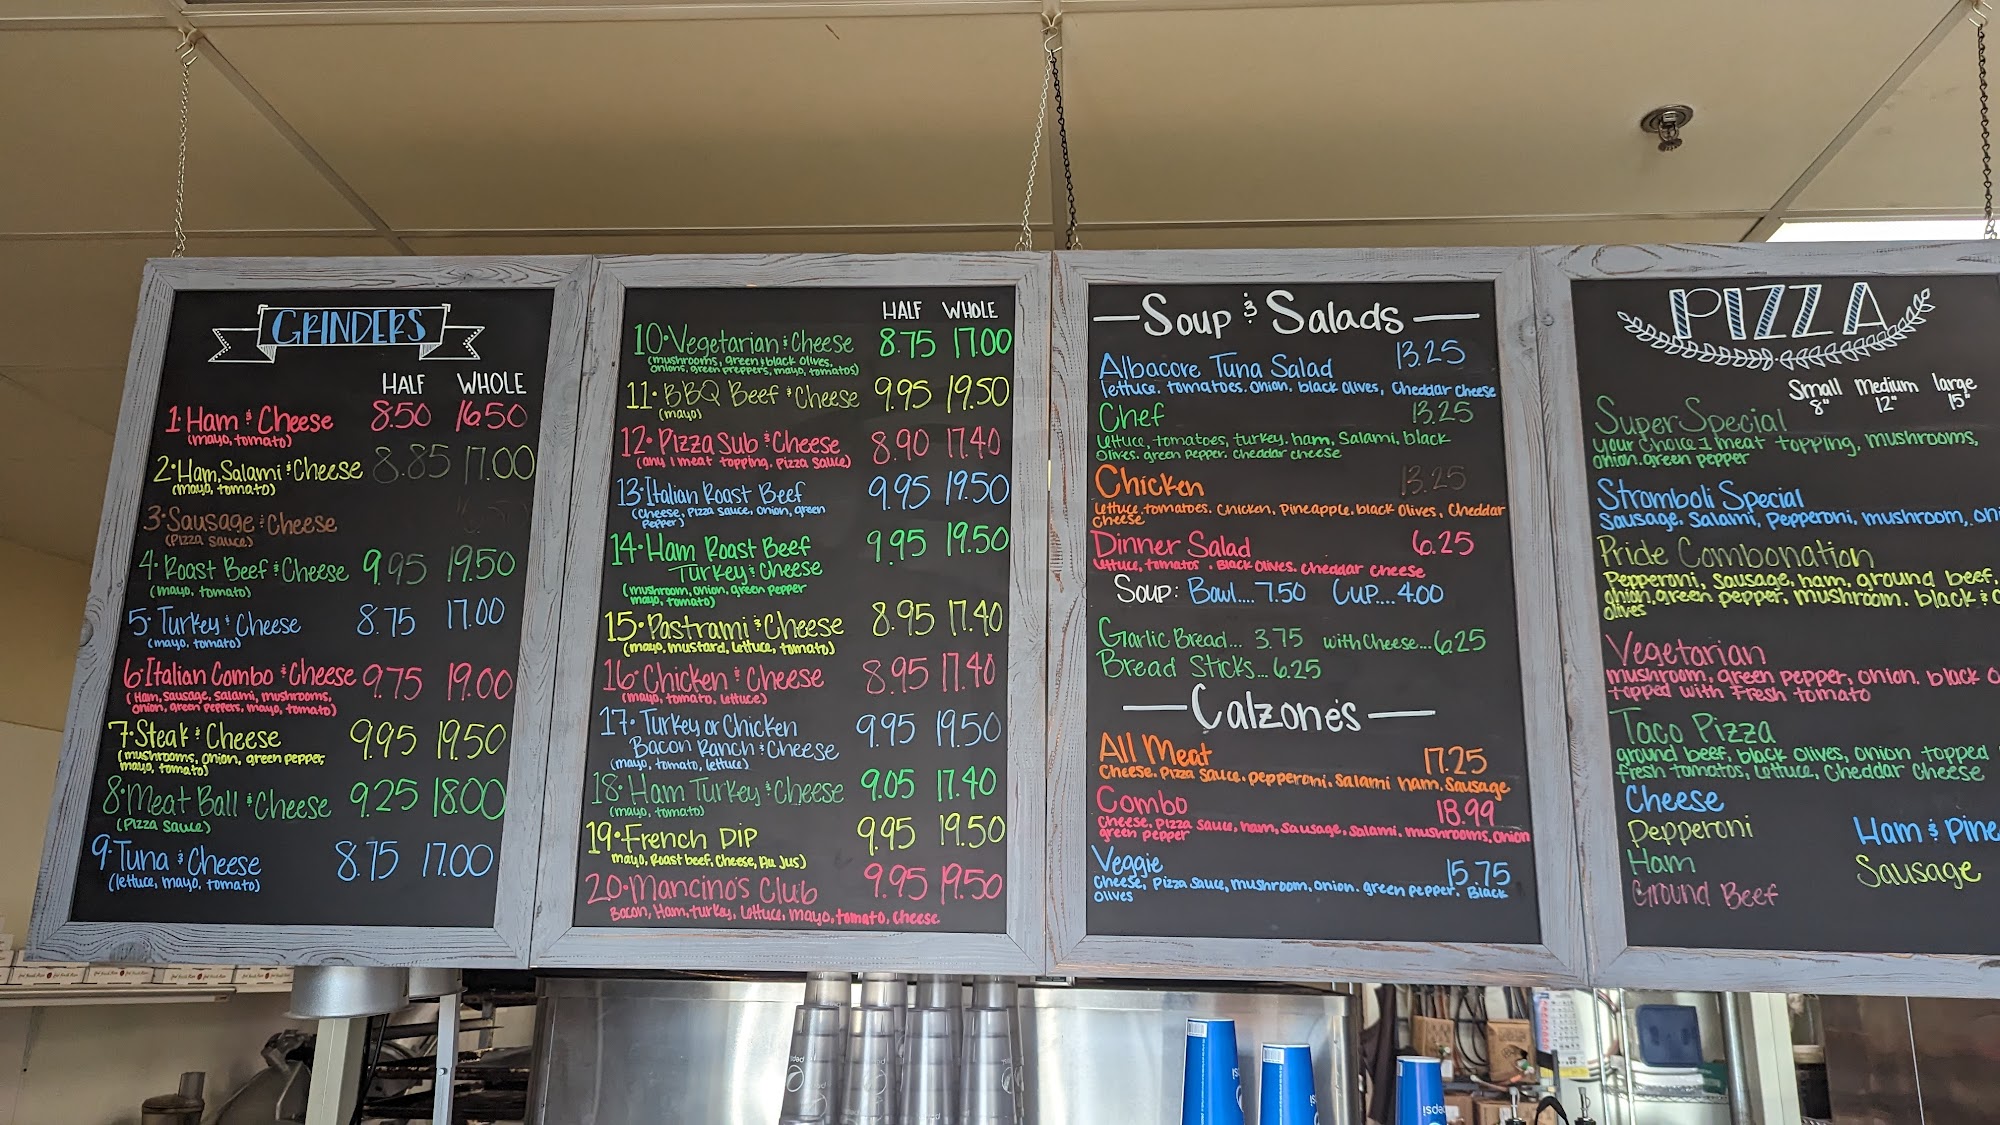 GRINDERS
HALF WHOLE
1. Ham & Cheese 8.50 16.50
(mayo, tomato)
2. Ham, Salami & Cheese 8.85 17.00
(mayo, tomato)
3. Sausage & Cheese
(Pizza sauce)
4. Roast Beef & Cheese 9.95 19.50
(mayo, tomato)
5. Turkey & Cheese 8.75 17.00
(mayo, tomato)
6. Italian Combo & Cheese 9.75 19.00
(Ham, sausage, salami, mushrooms,
onion, green peppers, mayo, tomato)
7. Steak & Cheese 9.95 19.50
(mushrooms, onion, green pepper,
mayo, tomato)
8. Meat Ball & Cheese 9.25 18.00
(Pizza sauce)
9. Tuna & Cheese 8.75 17.00
(lettuce, mayo, tomato)
HALF WHOLE
10. Vegetarian & Cheese 8.75 17.00
(mushrooms, green & black olives,
onions, green preppers, mayo, tomatos)
11. BBQ Beef & Cheese 9.95 19.50
(mayo)
12. Pizza Sub & Cheese 8.90 17.40
(any 1 meat topping, pizza sauce)
13. Italian Roast Beef 9.95 19.50
(Cheese, Pizza sauce, onion, green
Pepper)
14. Ham Roast Beef 9.95 19.50
Turkey & Cheese
(mushroom, onion, green pepper
mayo, tomato)
15. Pastrami & Cheese 8.95 17.40
(mayo, mustard, lettuce, tomato)
16. Chicken & Cheese 8.95 17.40
(mayo, tomato, lettuce)
17. Turkey or Chicken 9.95 19.50
Bacon Ranch & Cheese
(mayo, tomato, lettuce)
18. Ham Turkey & Cheese 9.05 17.40
(mayo, tomato)
19. French DIP 9.95 19.50
mayo, Roast beef, Cheese, Au Jus)
20. Mancino's Club 9.95 19.50
Bacon, Ham, turkey, Lettuce, mayo, tomato, cheese
Soup & Salads
Albacore Tuna Salad 13.25
lettuce. tomatoes. onion, black olives, Cheddar Cheese
Chef 13.25
lettuce, tomatoes, turkey, ham, Salami, black
Olives. green pepper. cheddar cheese
Chicken 13.25
lettuce, tomatoes. Chicken, Pineapple, black olives, Cheddar
Cheese
Dinner Salad 6.25
lettuce, tomatos. Black Olives. cheddar cheese
Soup: Bowl.... 7.50 Cup.... 4.00
Garlic Bread... 3.75 with Cheese... 6.25
Bread Sticks... 6.25
Calzone's
All Meat 17.25
Cheese. Pizza Sauce. pepperoni, Salami ham, Sausage
Combo 18.99
Cheese, Pizza sauce, ham, sausage, salami, mushrooms, onion
green pepper
Veggie 15.75
Cheese, Pizza sauce, mushroom, onion. green pepper. Black
Olives
PIZZA
Small Medium large
8" 12" 15"
Super Special
your choice 1 meat topping, mushrooms,
onion. green pepper
Stromboli Special
Sausage, Salami, Pepperoni, mushroom,
Pride Combonation
Pepperoni, sausage, ham, ground beef,
onion, green pepper, mushroom. black &
olives
Vegetarian
mushroom, green pepper, onion. black
topped with Fresh tomato
Taco Pizza
ground beef, black olives, onion topped
fresh tomatos, lettuce, Cheddar Cheese
Cheese
Pepperoni Ham & Pine
Ham Sausage
Ground Beef